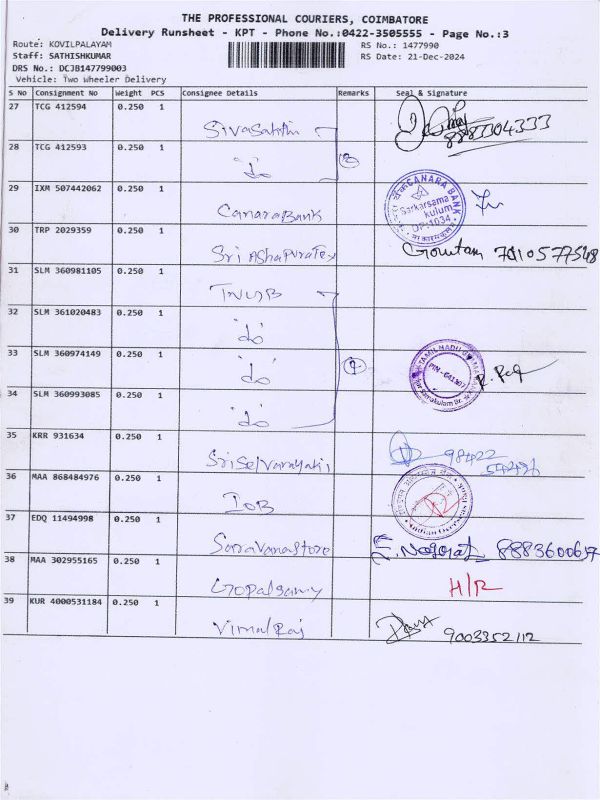 THE PROFESSIONAL COURIERS, COIMBATORE
Delivery Runsheet - KPT - Phone No.:0422-3505555 - Page No.:3
Route: KOVILPALAYAM RS No.: 1477990
Staff: SATHISHKUMAR RS Date: 21-Dec-2024
DRS No.: DCJB147799003
Vehicle: Two Wheeler Delivery
S No Consignment No Weight PCS Consignee Details Remarks Seal & Signature
27 TCG 412594 0.250 1
28 TCG 412593 0.250 1
do
29 IXM 507442062 0.250 1
Canara Bank CANARA BANK
Sarkarsama
kulum
DP:1034
30 TRP 2029359 0.250 1
Goutam
31 SLM 360981105 0.250 1
32 SLM 361020483 0.250 1
do
33 SLM 360974149 0.250 1
do
34 SLM 360993085 0.250 1
do
35 KRR 931634 0.250 1
98422
36 MAA 868484976 0.250 1
IOB
37 EDQ 11494998 0.250 1
Saravana store
38 MAA 302955165 0.250 1
Gopalsamy H/R
39 KUR 4000531184 0.250 1
VimalRaj 9003352112